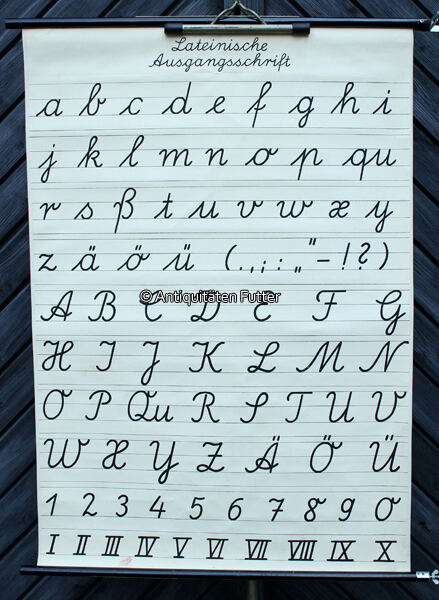 Lateinische
Ausgangsschrift
a b c d e f g h i
j k l m n o p qu
r s ß t u v w x y
z ä ö ü (.,;:„"-!?)
© Antiquitäten Futter
A B C D E F G
H I J K L M N
O P Qu R S T U V
W X Y Z Ä Ö Ü
1 2 3 4 5 6 7 8 9 0
I II III IV V VI VII VIII IX X